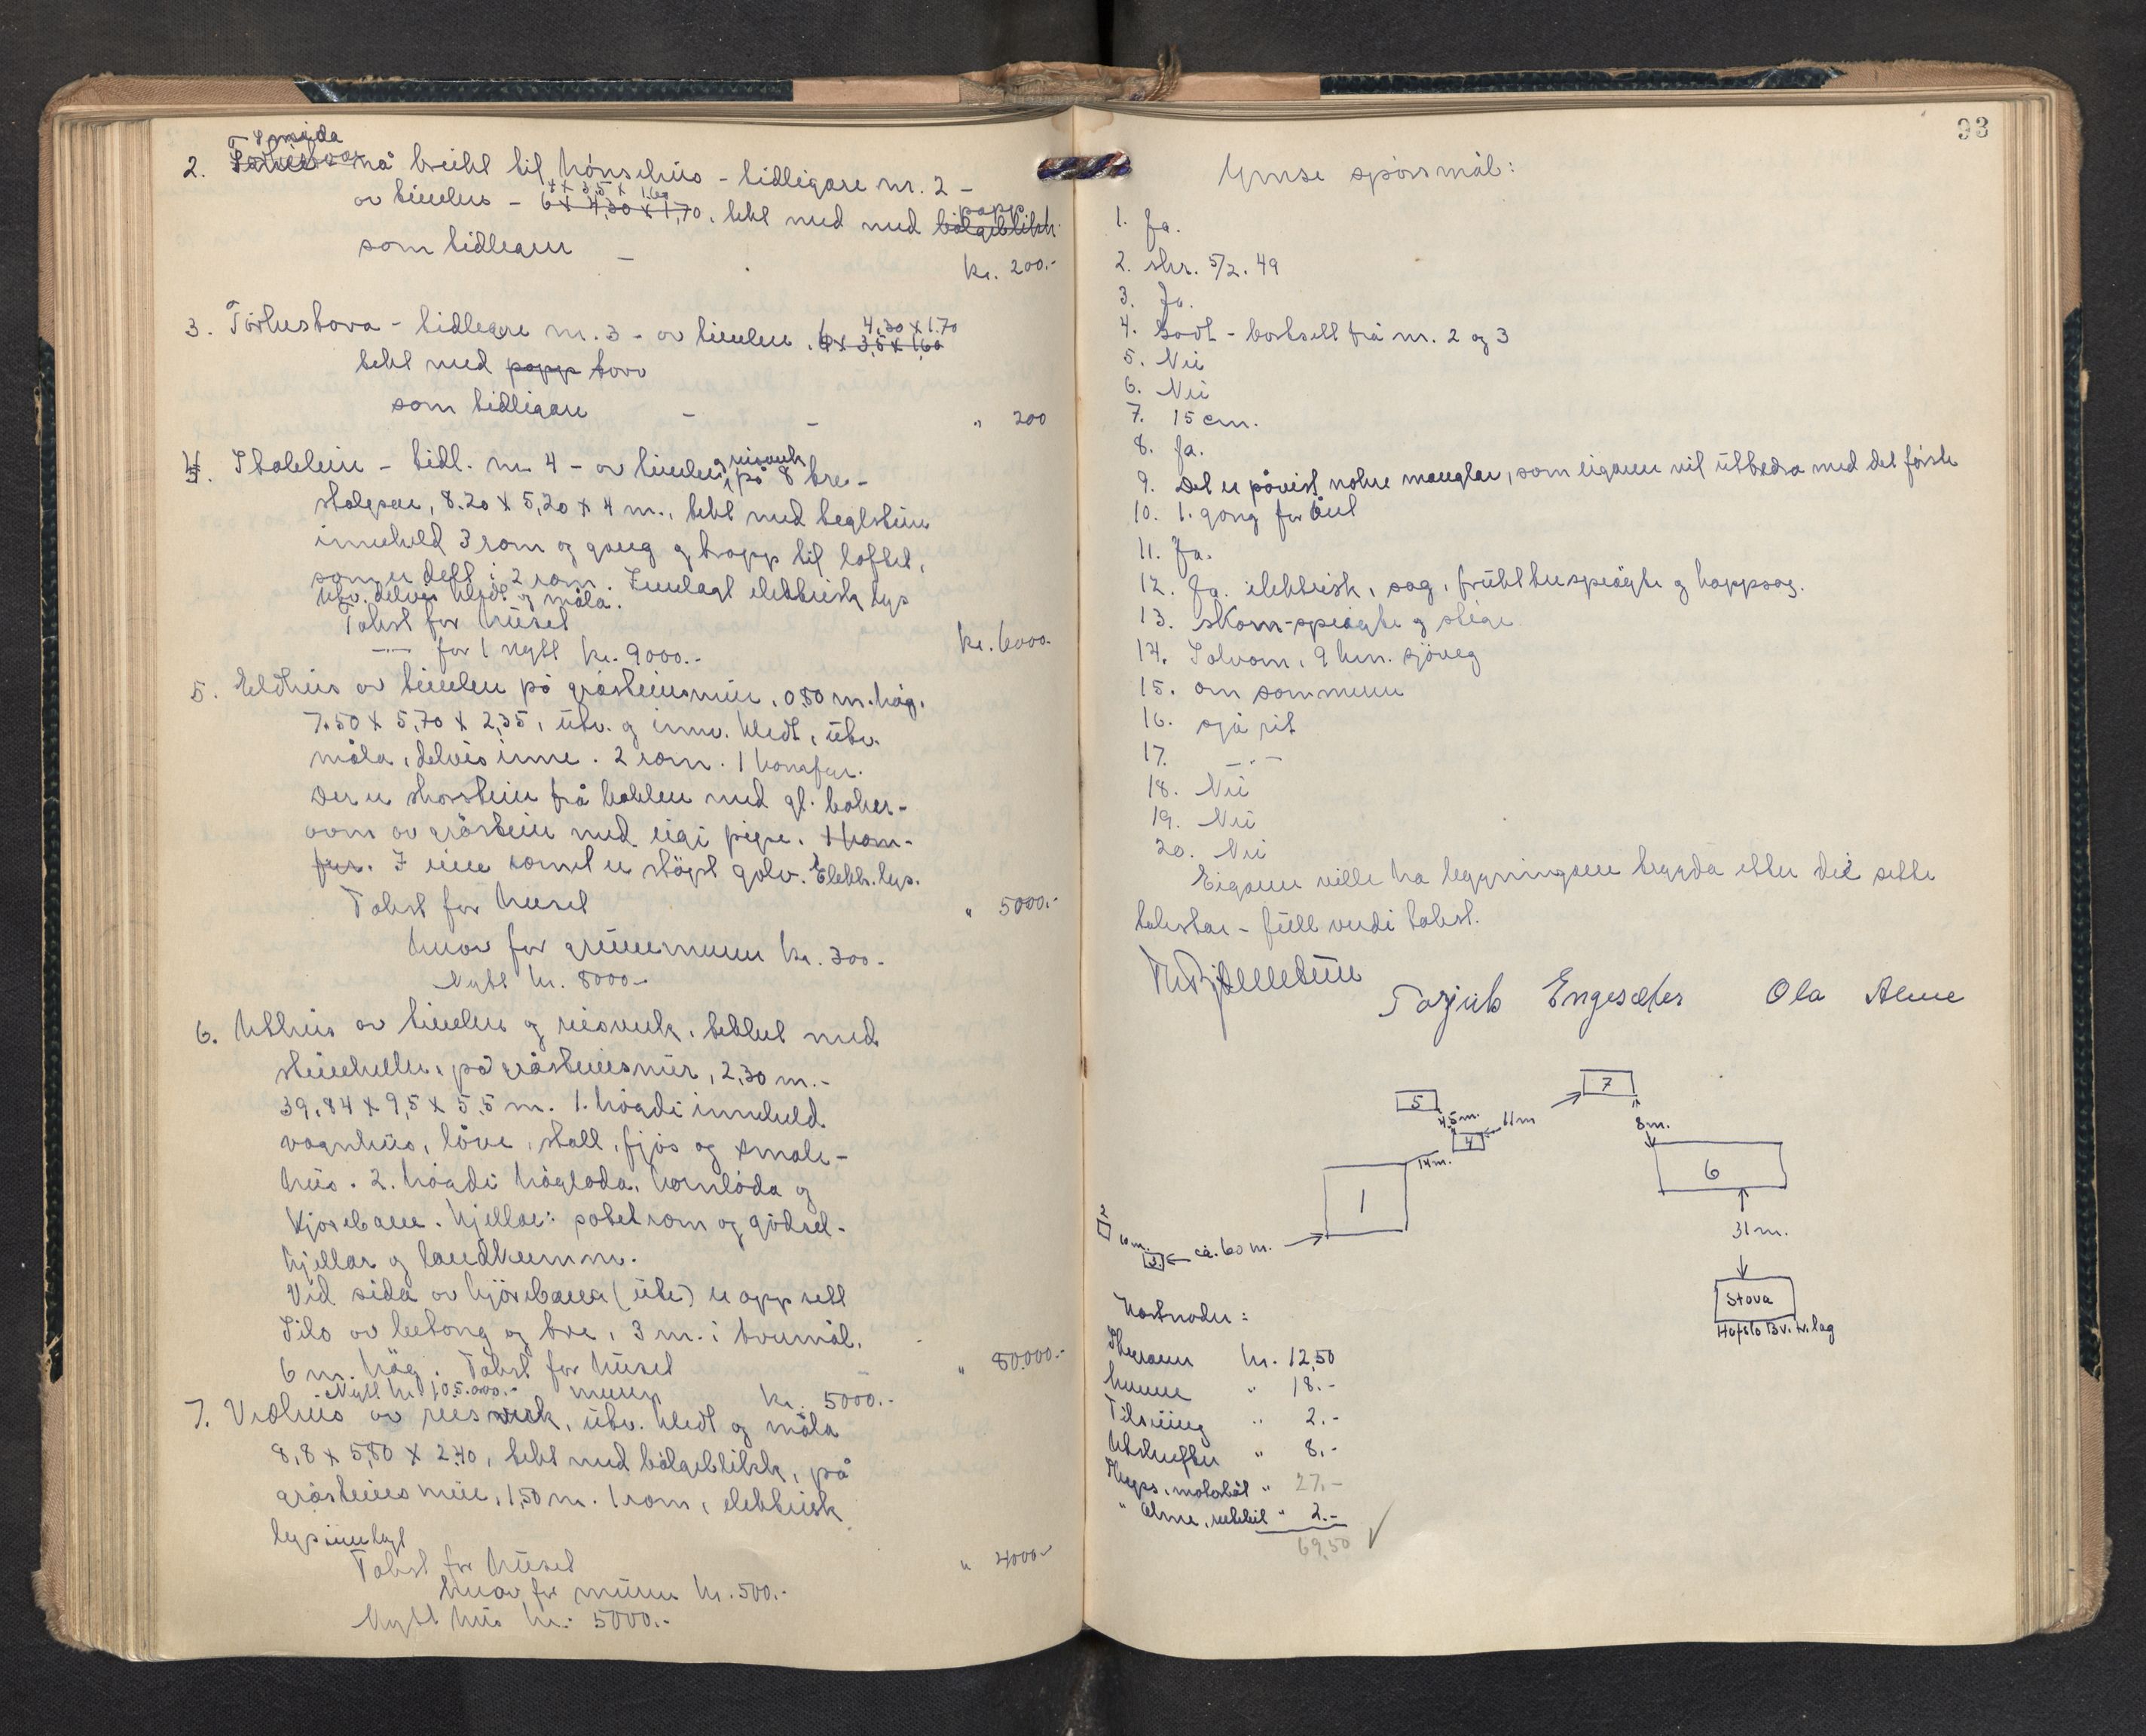 Smida
2. nå brukt til hönsehus - tidligare nr. 2 -
4 x 3,5 x 1,60
av timber - 6 x 4,30 x 1,70, tekt med med bölgeblikk papp
som tidlegare -
kr. 200.-
3. Törkestova - tidlegare nr. 3 - av timber. 6 x 4,30 x 1.70
4 x 3,5 x 1,60
tekt med papp torv
som tidligare - - " 200
4. Stabburi - tidl. nr. 4 - av timber og reisverk, på 8 tre-
stolpar, 8.20 x 5,20 x 4 m., tekt med teglstein
inneheld 3 rom og gang og trapp til loftet,
som er delt i 2 rom. Innlagt elektrisk lys
utv. delvis kledt og måla.
Takst for huset kr. 6000.-
-"- for 1 nytt kr. 9000.-
5. Eldhus av timber på gråsteinsmur, 0.80 m. høg.
7.50 x 5,70 x 2,35, utv. og innv. kledt, utv.
måla, delvis inne. 2 rom. 1 komfyr.
Der er skorstein frå kjellar med gl. baker-
ovn av gråstein med eigi pipe. 1 kom-
fyr. I eine romet er støypt golv. Elektr. lys.
Takst for huset " 5000.-
herav for grunnmuren kr. 300.-
Nytt kr. 8000.-
6. Uthus av timber og reisverk, tekket med
steinheller, på gråsteinsmur, 2,30 m. -
39,84 x 9,5 x 5.5 m. 1. högdi inneheld
vognhus, löve, stall, fjös og smale-
hus. 2. högdi höyloda, kornlöda og
Kjörebane. Kjellar: potetrom og gödsel-
kjellar og landkumm.
Ved sida av kjörebana (ute) er oppsett
Silo av betong og tre, 3 m. i tverrmål,
6 m. høg. Takst for huset " 80.000.-
Nytt kr. 105.000.- muren kr. 5000.-
7. Vedhus av reisverk, utv. kledt og måla
8,8 x 5,80 x 2.40, tekt med bölgeblikk, på
gråsteinsmur, 1,50 m. 1 rom, elektrisk
lys innlagt
Takst for huset " 4000.-
herav for muren kr. 500.-
Nytt hus kr. 5000.-
93
Ymse spörsmål:
1. Ja.
2. skr. 5/2. 49
3. Ja.
4. Godt - bortsett frå nr. 2 og 3
5. Nei
6. Nei
7. 15 cm.
8. Ja.
9. Det er påvist nokre manglar, som eigaren vil utbedra med det förste
10. 1. gong for året
11. Ja.
12. Ja. elektrisk, sag, frukttresprøyte og kappsag.
13. skom-sprøyte og stige
14. Solvorn, 9 km. sjöveg
15. om sommeren
16. sjå rit
17. -"-
18. Nei
19. Nei
20. Nei
Eigaren ville ha bygningane trygda etter dei sette
takstar - full verdi takst.
Torjuls Engesæter Ola Alme
5
4,5 m.
4
11 m
7
8 m.
6
14 m.
1
2
10 m.
3.
ca. 60 m.
31 m.
Stova
Hafslo Br.tr.lag
Kostnader:
Skjønn kr. 12,50
" 18.-
Tilsuing " 2.-
Utskrifter " 8.-
Skyss, motorbåt " 27.-
" Alme, rutebil " 2.-
69,50